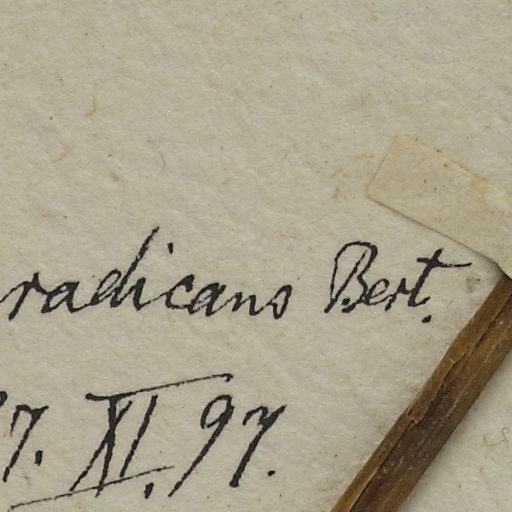 radicans Bert.
7. XI. 97.